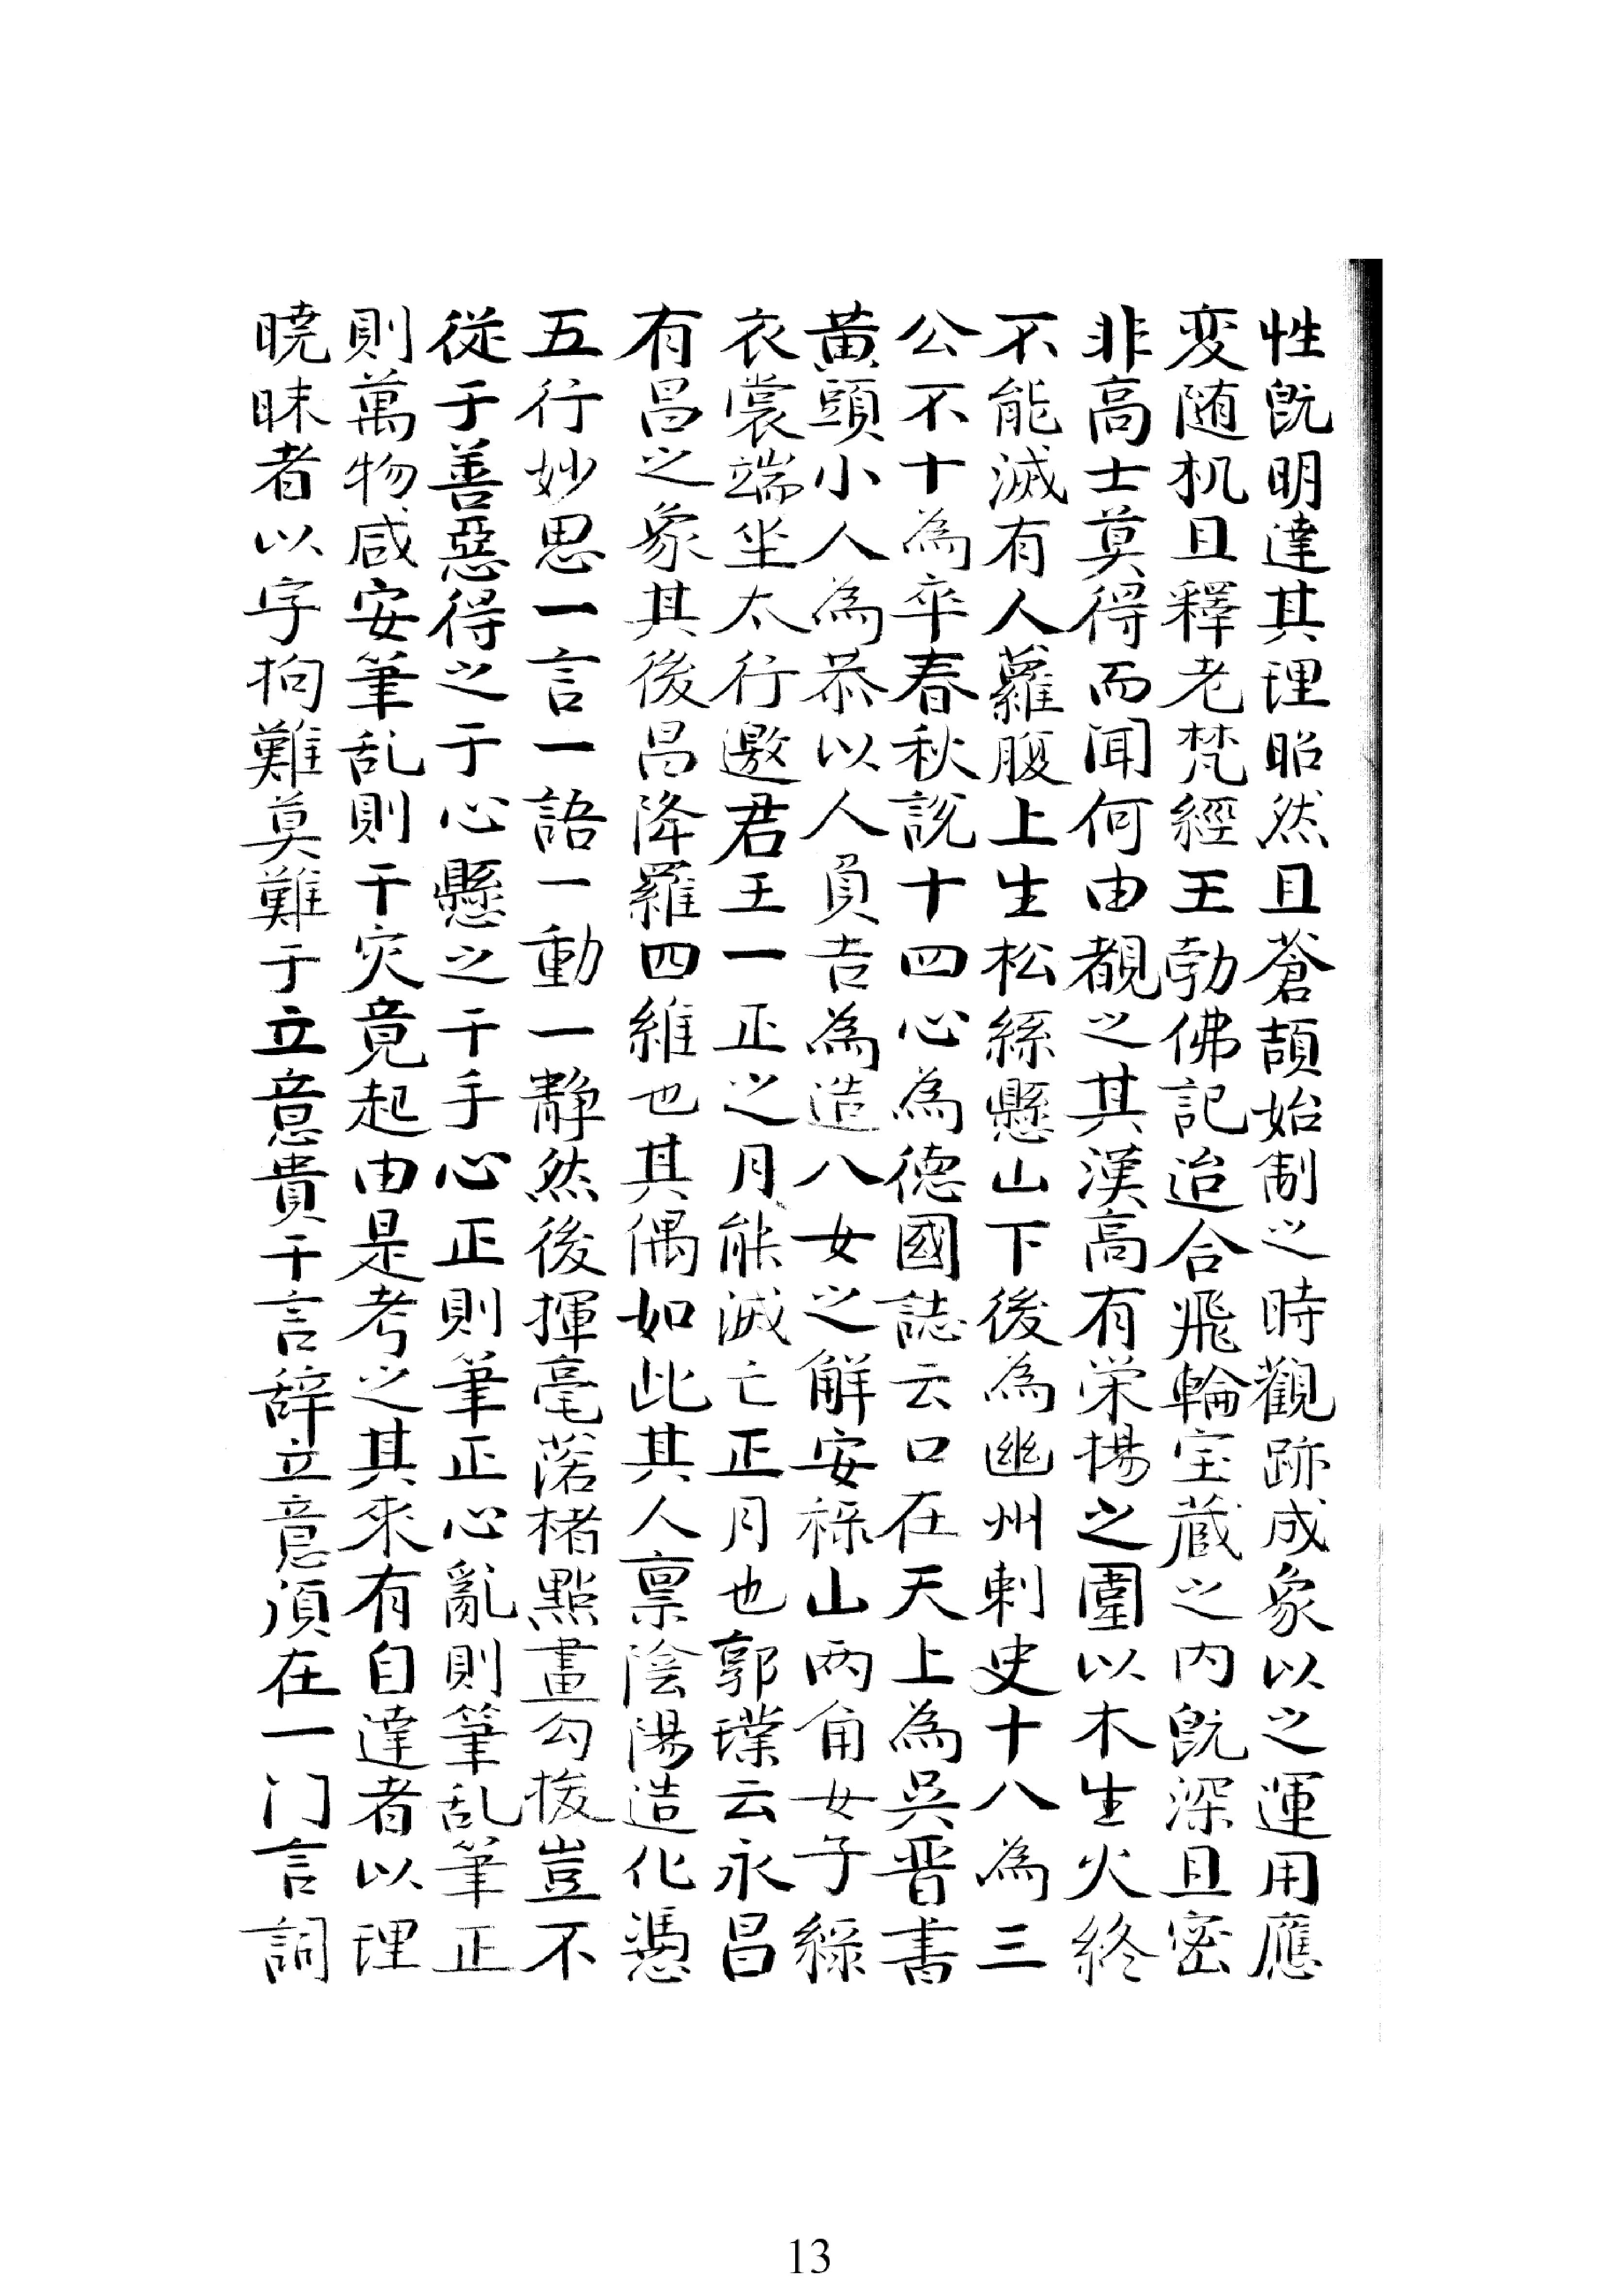 性既明達其理昭然且蒼頡始制之時觀跡成象以之運用應
変随机且釋老梵經王勃佛記迨合飛輪宝蔵之内既深且密
非高士莫得而闻何由覩之其漢高有荣揚之圍以木生火終
不能滅有人蘿腹上生松絲懸山下後為幽州刺史十八為三
公不十為卒春秋説十四心為德國誌云口在天上為吳晋書
黄頭小人為恭以人負吉為造八女之解安禄山两角女子緑
衣裳端坐太行邀君王一正之月能滅亡正月也郭璞云永昌
有昌之象其後昌降羅四維也其偶如此其人禀陰陽造化憑
五行妙思一言一語一動一静然後揮毫落楮點畫勾拨豈不
從于善惡得之于心懸之于手心正則筆正心亂則筆乱筆正
則萬物咸安筆乱則干灾竟起由是考之其來有自達者以理
曉昧者以字拘難莫難于立意貴于言辞立意湏在一门言詞
13